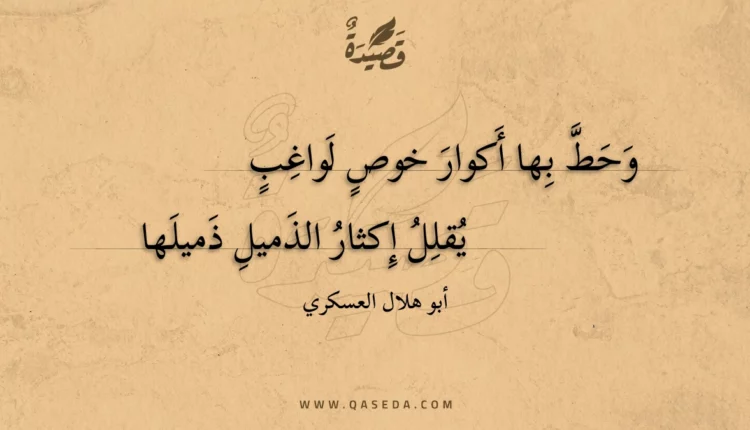 قَصِيْدَةٌ
وَحَطَّ بِها أَكوارَ خوصٍ لَواغِبٍ
يُقلِلُ إِكثارُ الذَميلِ ذَميلَها
أبو هلال العسكري
WWW.QASEDA.COM